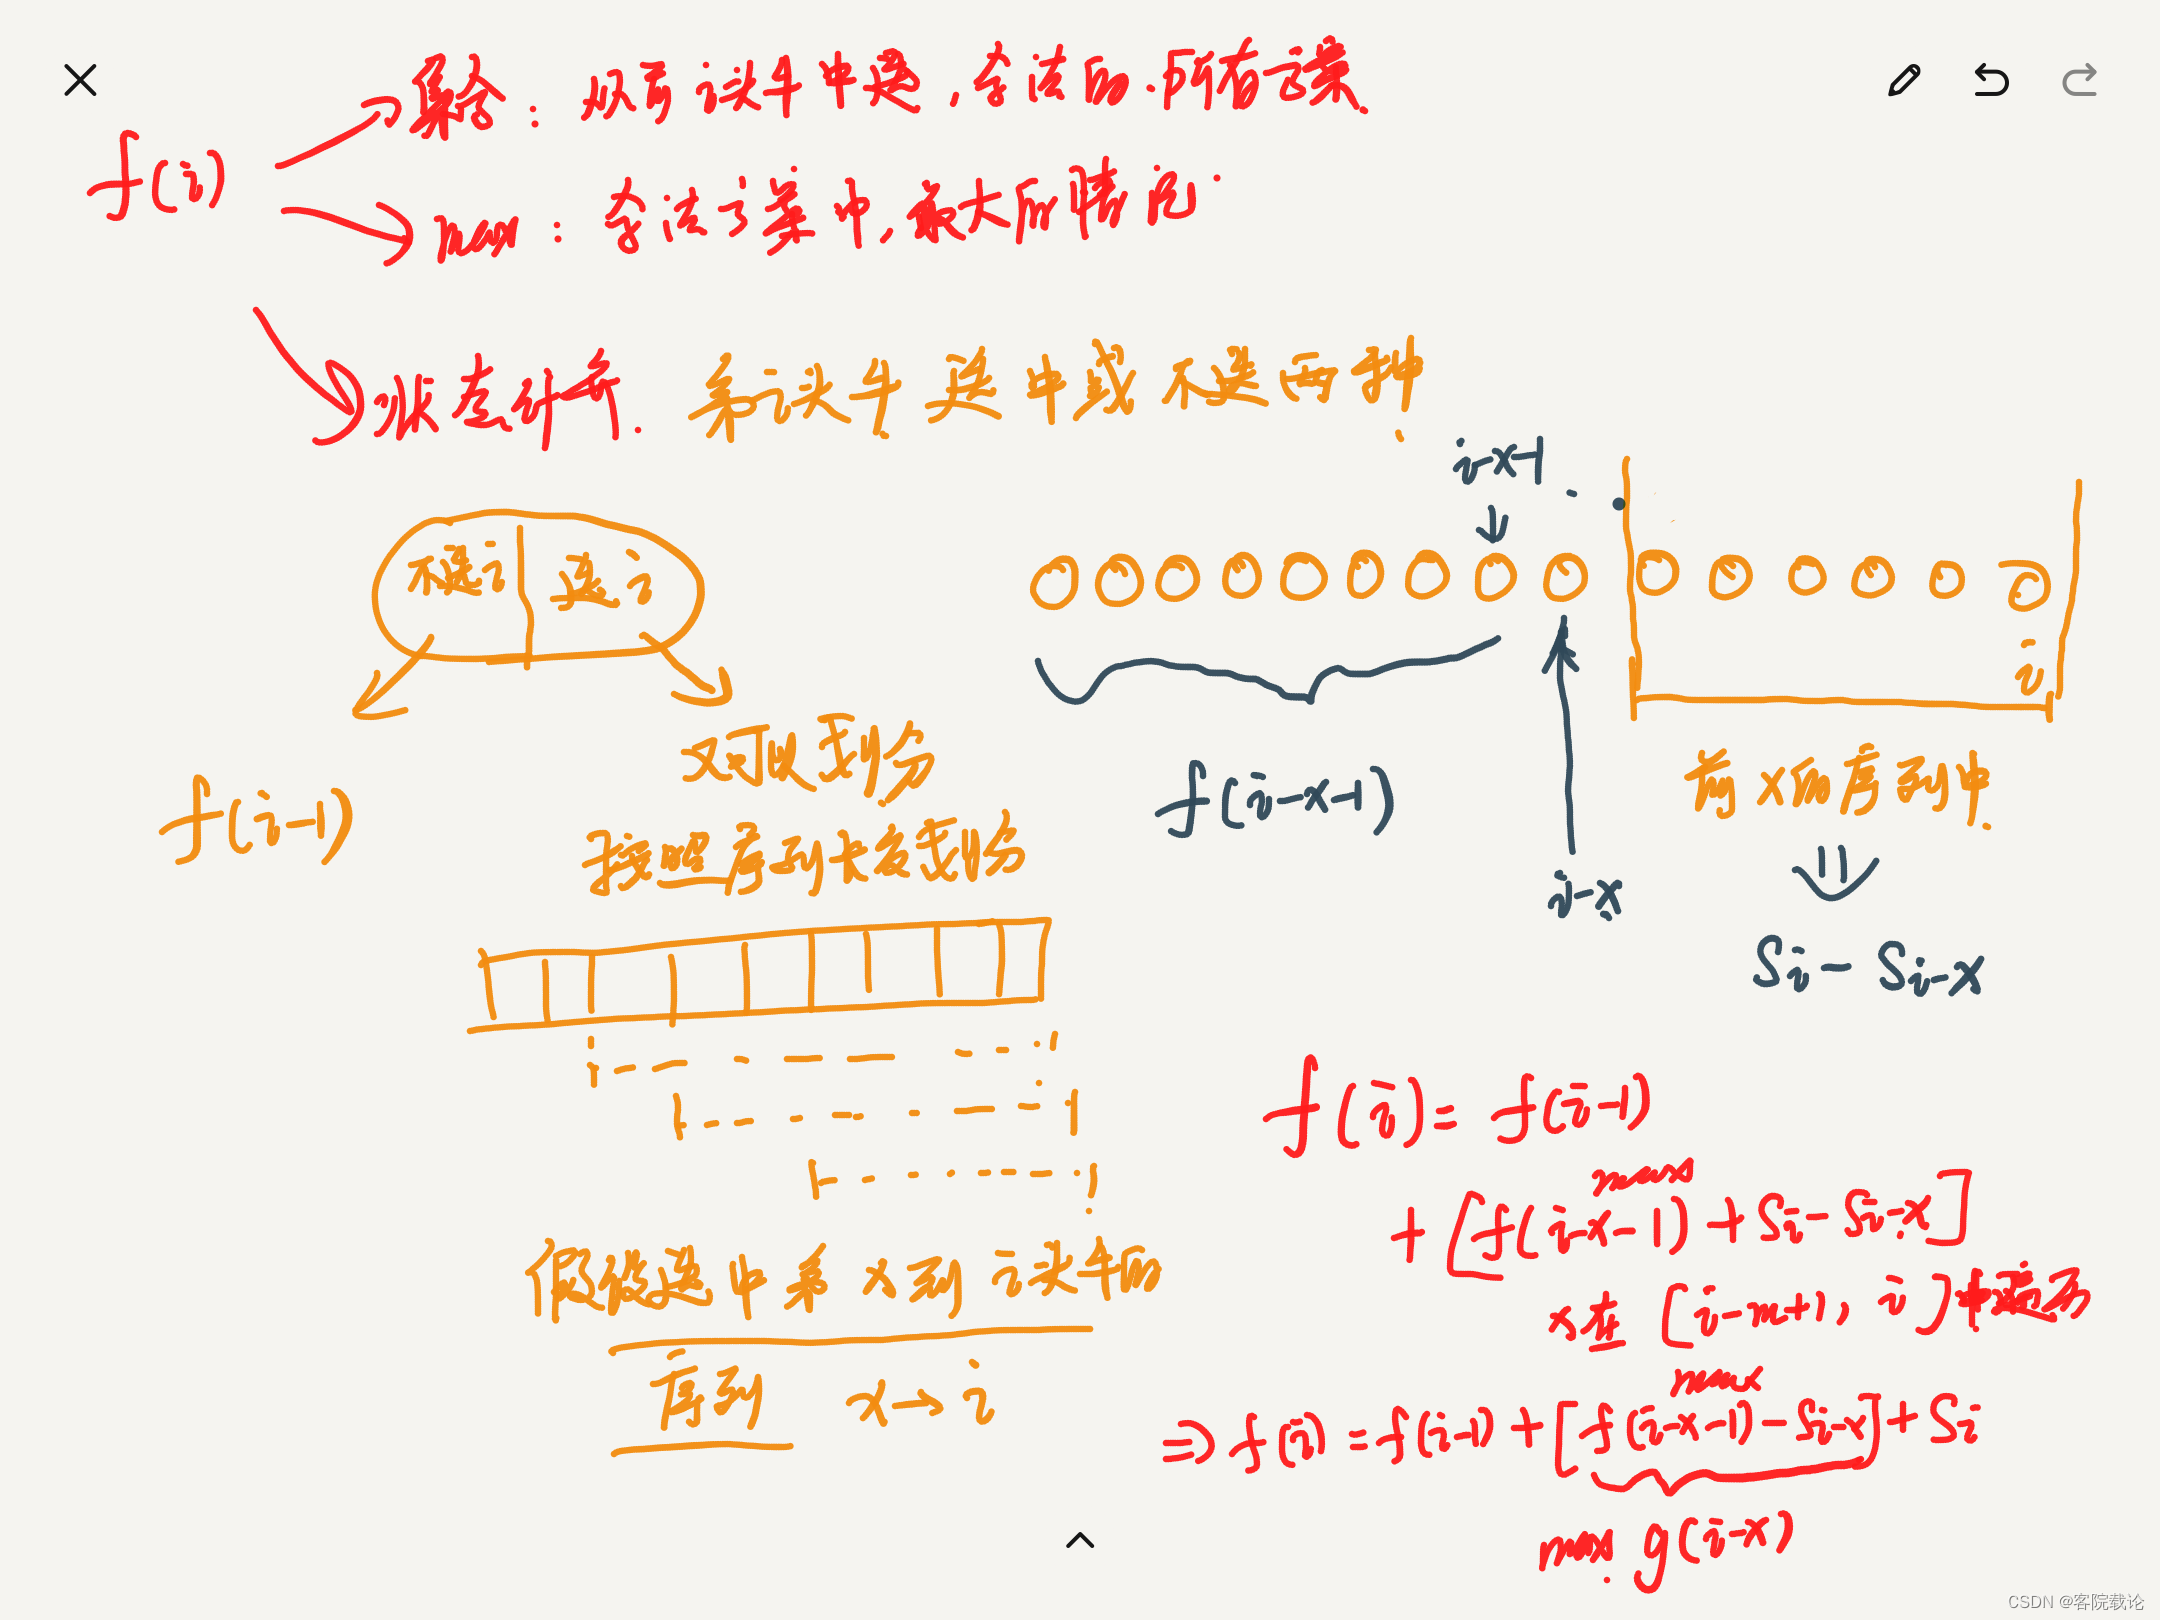 f(i)
集合: 从前i头牛中选,合法的.所有方案.
max: 合法方案中,最大的情况.
状态计算. 第i头牛选中或不选两种.
i-x-1
不选i 选i
i
f(i-1)
又可以划分
按照序列长度划分
f(i-x-1)
i-x
前x的序列中.
Si - Si-x
假设选中第x到i头牛的
序列 x→i
f(i) = f(i-1)
max
+ [f(i-x-1) + Si - Si-x]
x在[i-m+1, i]中遍历
max
⇒ f(i) = f(i-1) + [f(i-x-1) - Si-x] + Si
max. g(i-x)
CSDN @客院载论